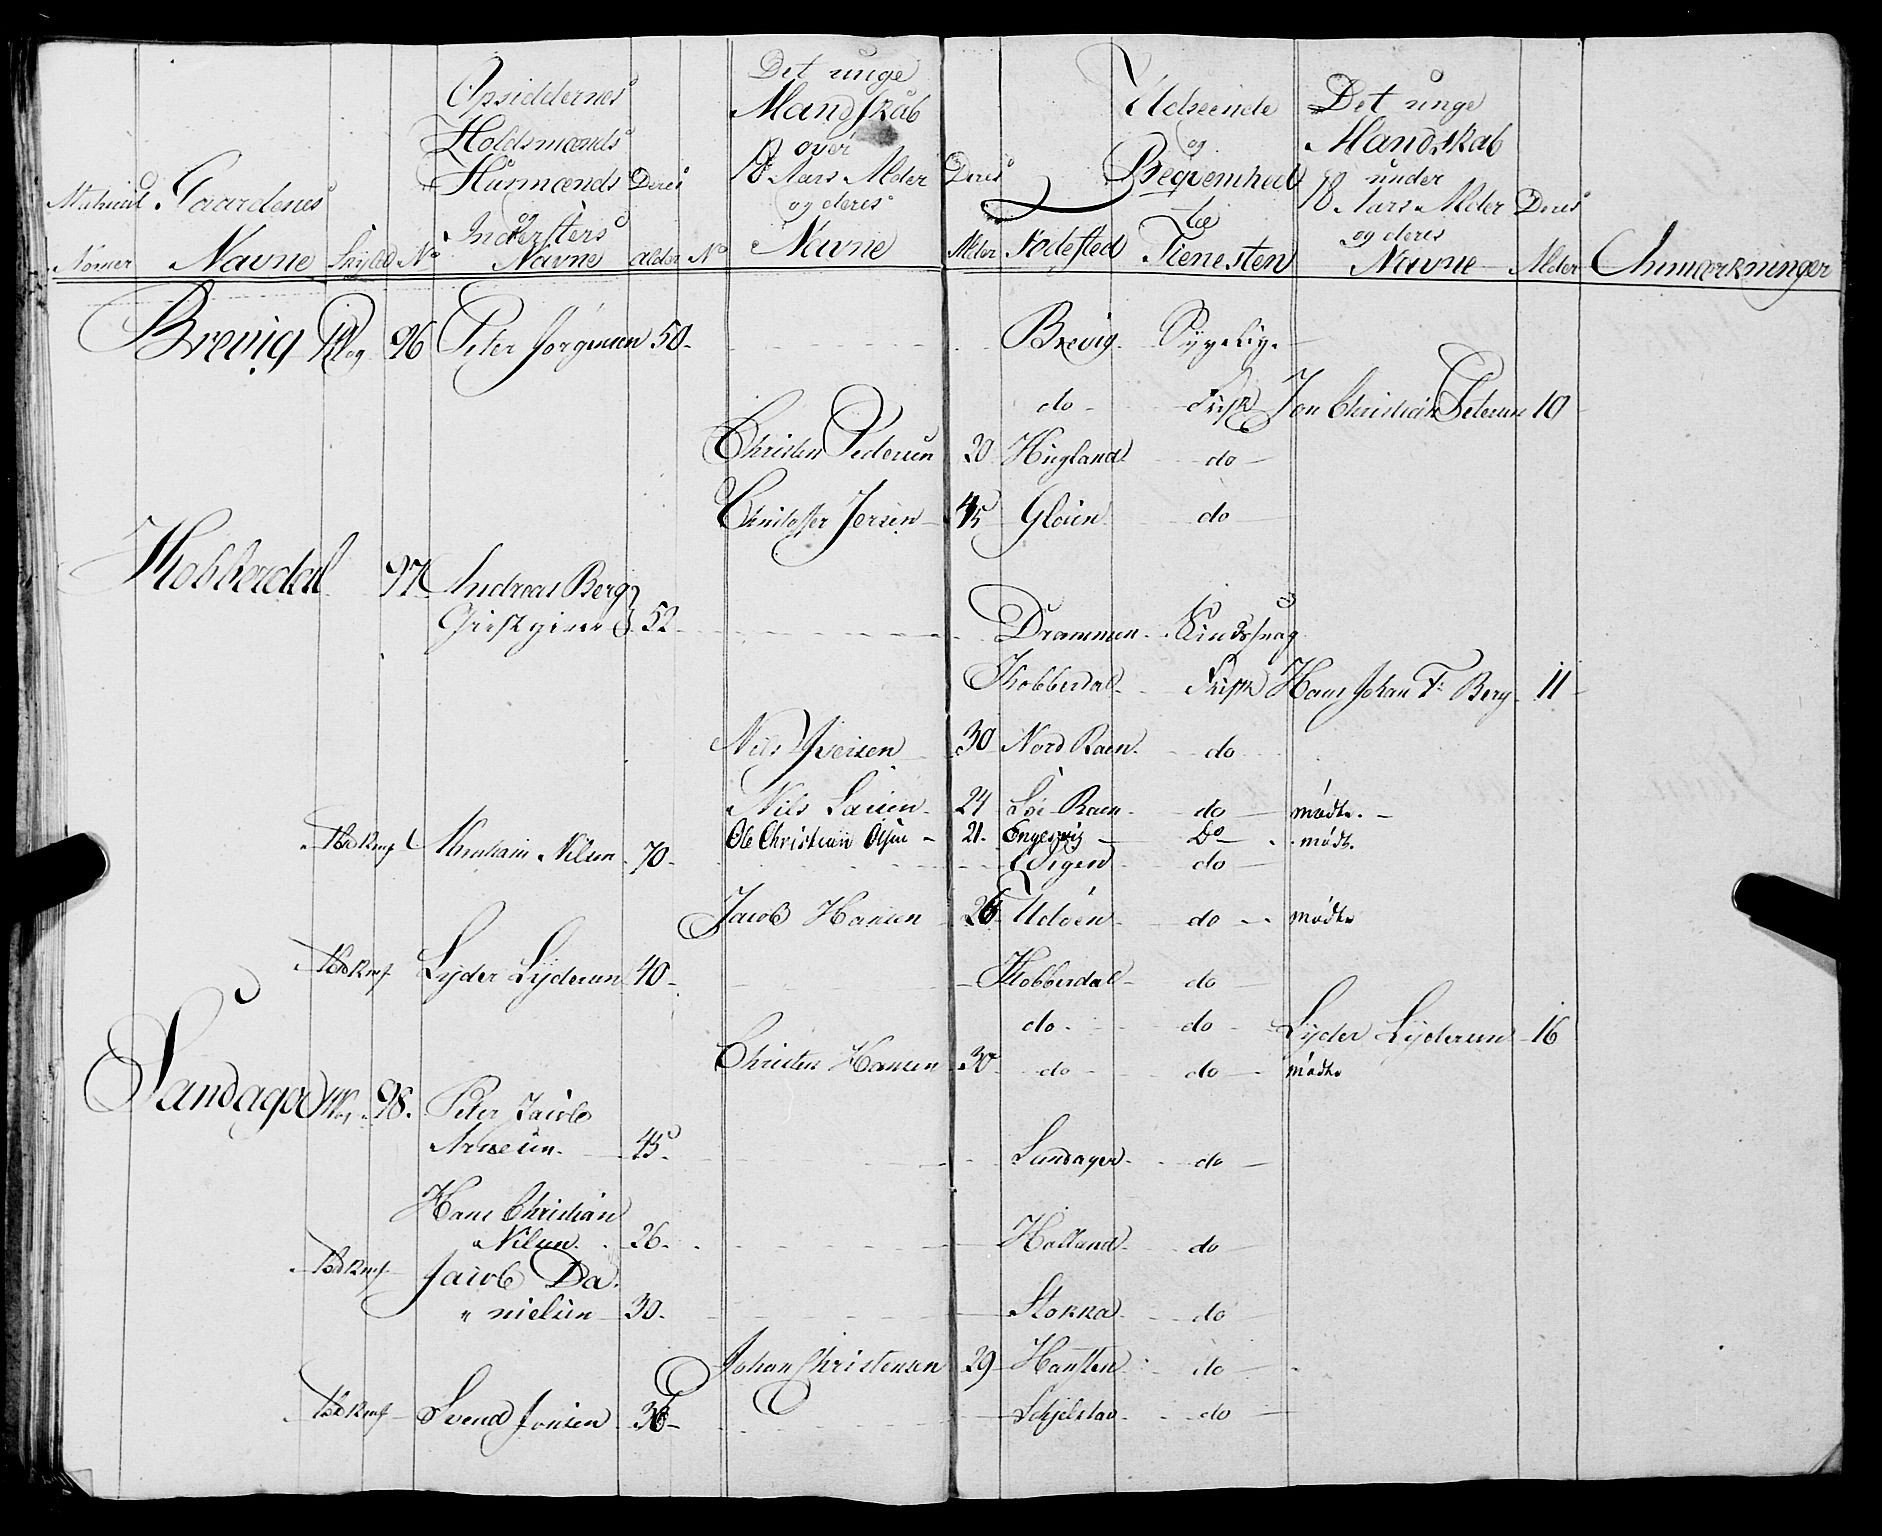 Matricul Nomer
Gaardenes Navne
Skyld
No
Opsiddernes Holdsmænds Huusmænds og Indersters Navne
Deres alder
No
Det unge Mandskab over 18 Aars Alder og deres Navne
Deres Alder
Fødested
Udseende og Beqvemhed til Tienesten
Det unge Mandskab under 18 Aars Alder og deres Navne
Deres Alder
Anmærkninger
Brevig 96 Peter Jørgensen 50 Brevig Sygelig
do Frisk Jon Christian Petersen 10
Christen Pedersen 20 Høgland do
Christoffer Jensen 45 Gloien do
Kobberdal 97 Andreas Berg
Giestgiver 52 Drammen Sindssvag
Kobberdal Frisk Hans Johan F: Berg 11
Nils Iversen 30 Nord Raen do
Nils Larsen 24 Sør Raen do mødte
Ole Christian Olsen 21 Engervig Do mødte
Abraham Nilsen 70 Vigen do
Jacob Hansen 26 Udøen do mødte
Lyder Lydersen 40 Kobberdal do
do do Lyder Lydersen 16
Christen Hansen 30 do do mødte
Sandager 98 Peter Jacob
Arnesen 45 Sandager do
Hans Christian
Nilsen 26 Halland do
Jacob Da
nielsen 30 Stokka do
Johan Christensen 29 do
Svend Jonsen 36 Schjelstad do